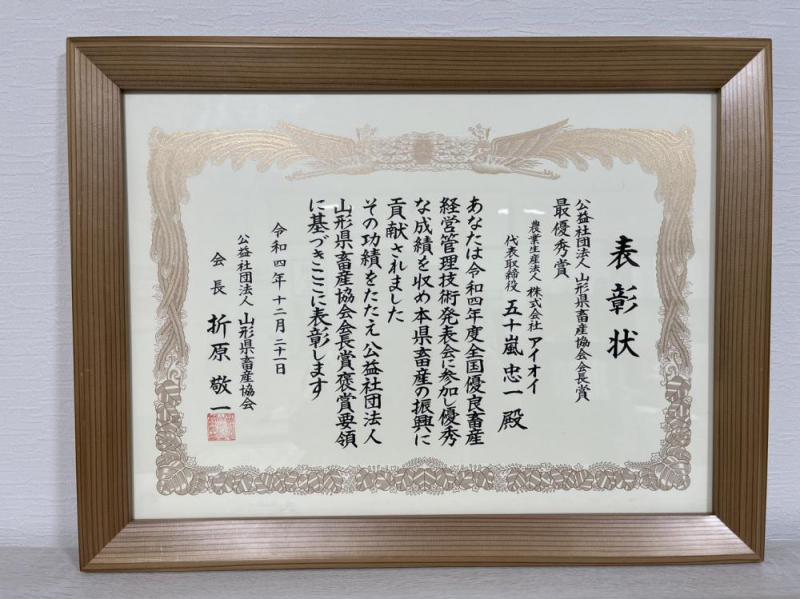 表彰状
公益社団法人 山形県畜産協会会長賞
最優秀賞
農業生産法人 株式会社 アイオイ
代表取締役 五十嵐 忠一 殿
あなたは令和四年度全国優良畜産
経営管理技術発表会に参加し優秀
な成績を収め本県畜産の振興に
貢献されました
その功績をたたえ公益社団法人
山形県畜産協会会長賞褒賞要領
に基づきここに表彰します
令和四年 十二月 二十一日
公益社団法人 山形県畜産協会
会長 折原 敬一